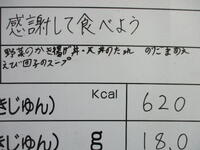 感謝して食べよう
野菜のかき揚げ丼・天丼のたれ のたまあえ
えび団子のスープ
Kcal
きじゅん) 620
きじゅん) g 18.0